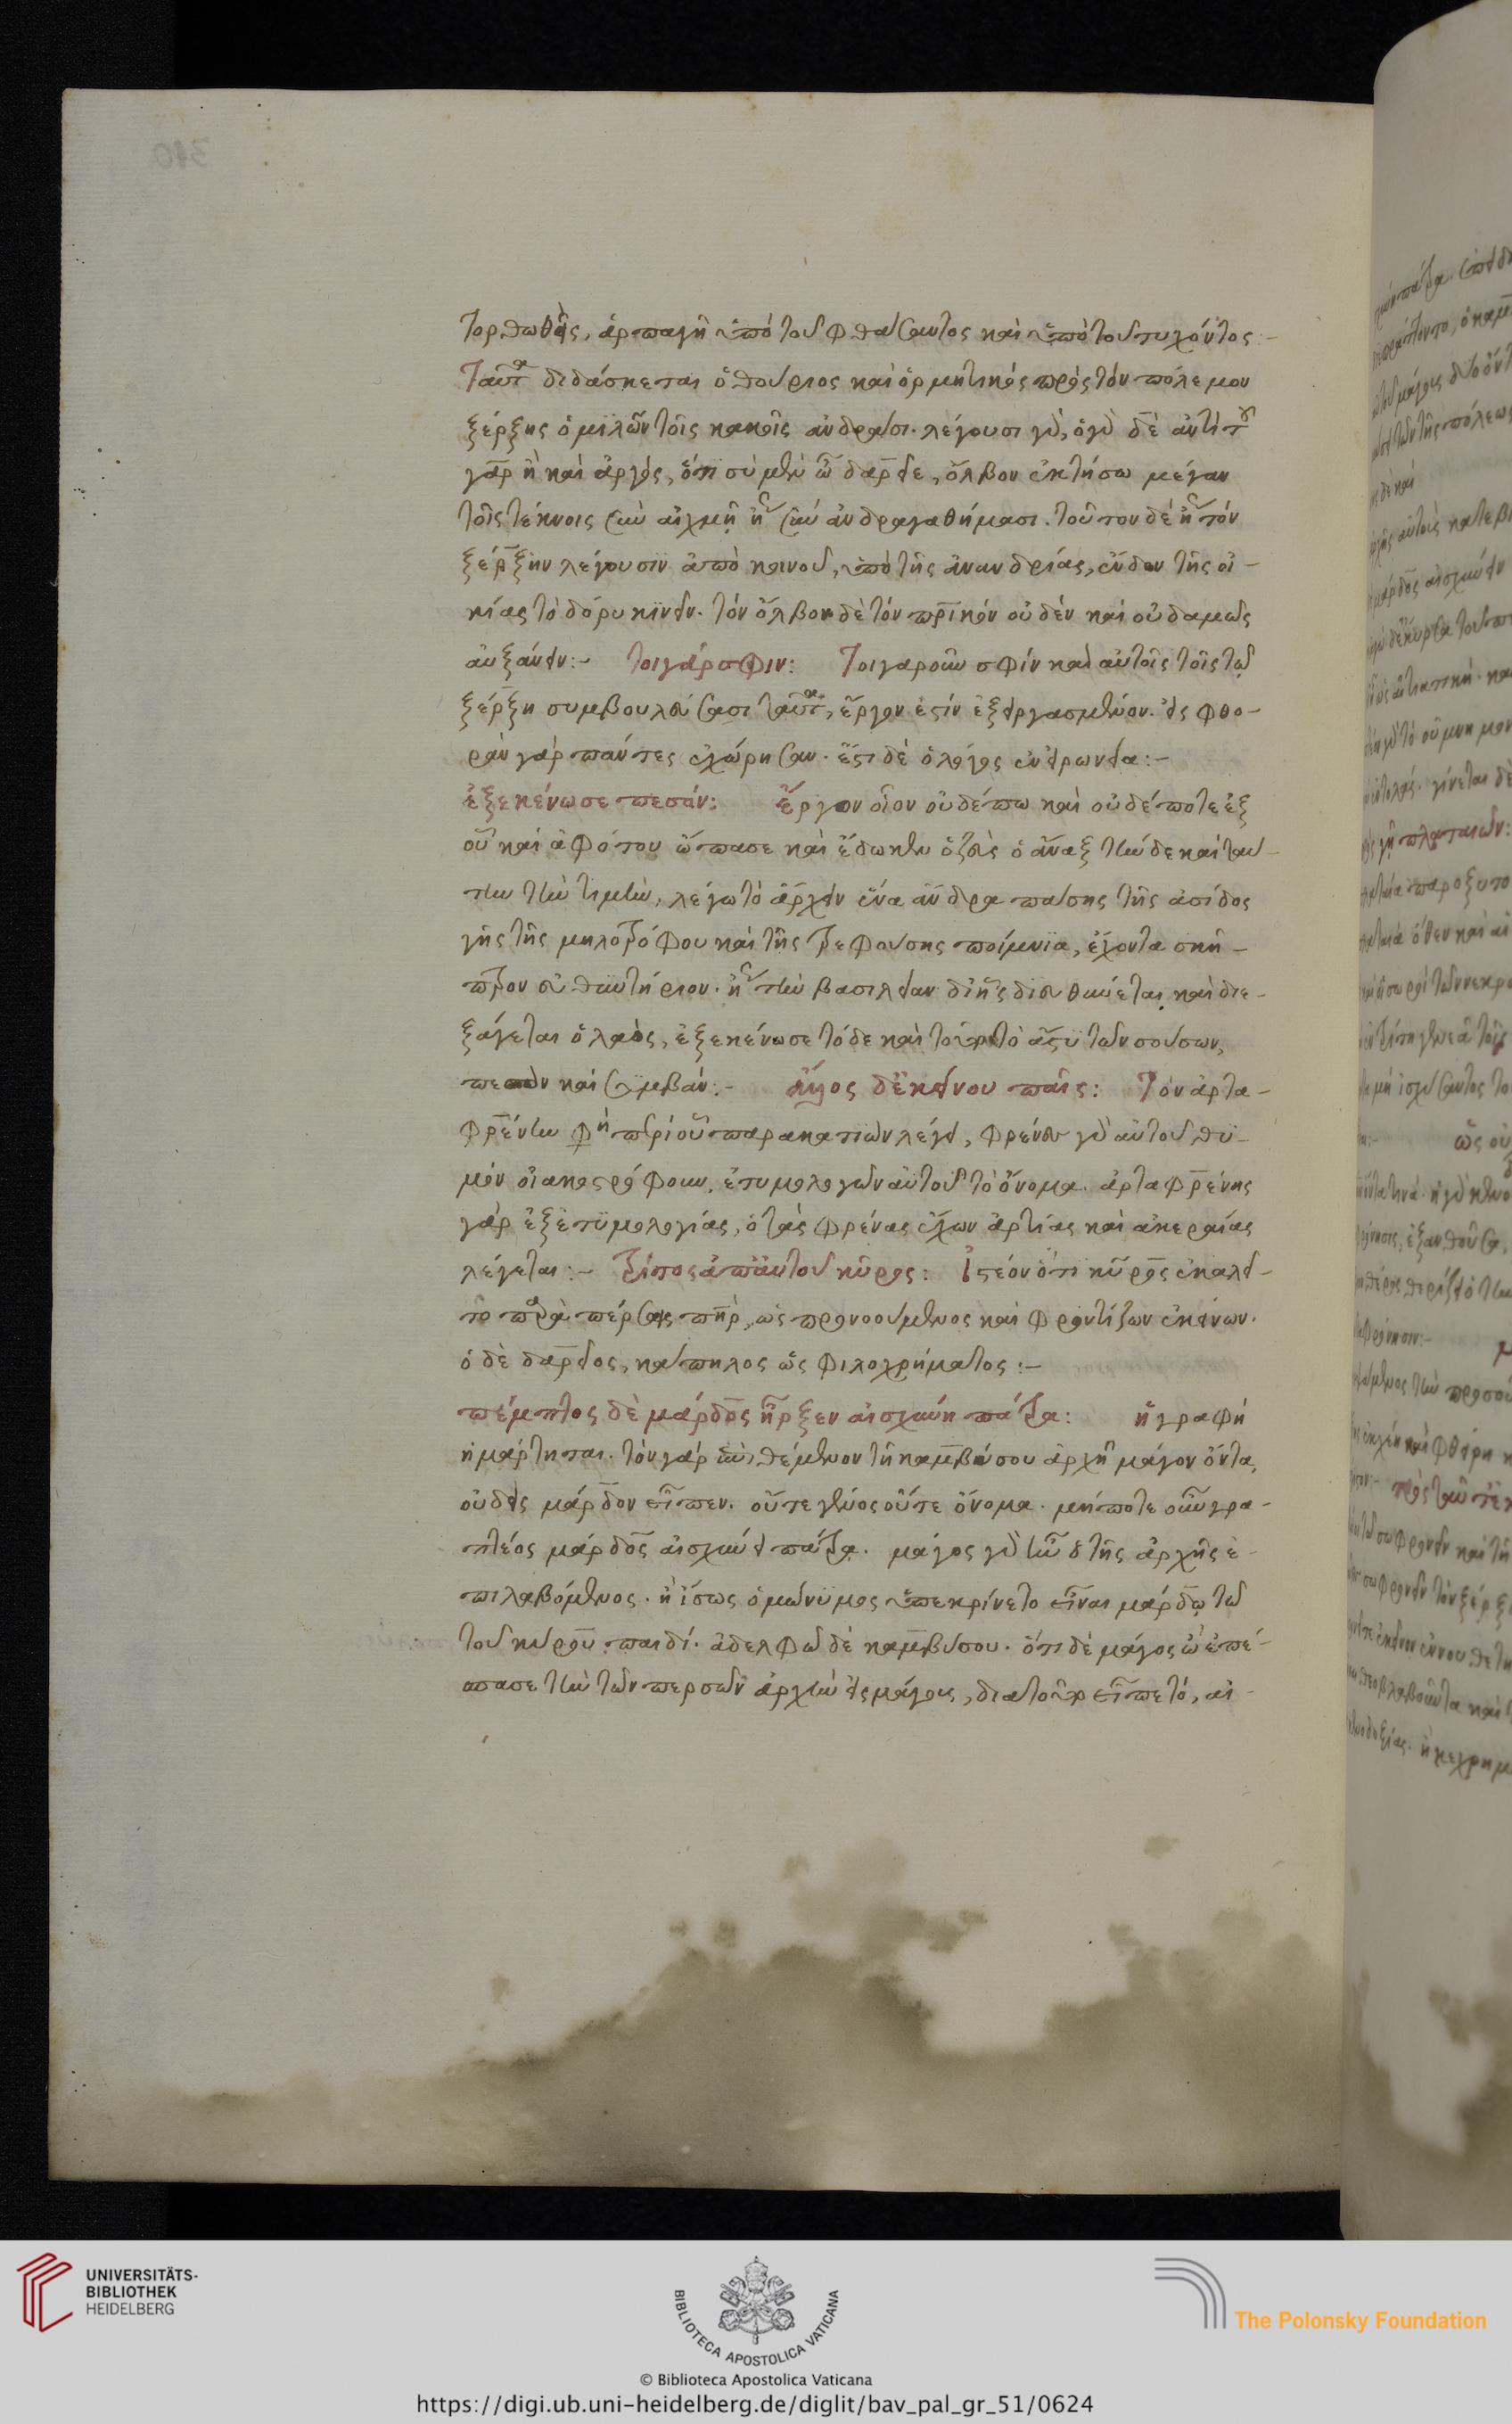 τορθωθεῖς, ἁρπαγῆ ὑπὸ τοῦ φθάσαντος καὶ ὑπὸ τοῦ τυχόντος:-
Ταῦτα διδάσκεται ὁ θούριος καὶ ὁρμητικὸς πρὸς τὸν πόλεμον
ξέρξης ὁμιλῶν τοῖς κακοῖς ἀνδράσι. λέγουσι γὰρ, ὁ γὰρ δὲ ἀντὶ τοῦ
γὰρ ἢ καὶ ἀργὸς, ὅτι σὺ μὲν ὦ δαρεῖε, ὄλβον ἐκτήσω μέγαν
τοῖς τέκνοις σὺν αἰχμῇ ἤγουν σὺν ἀνδραγαθήμασι. τοῦτον δὲ ἤγουν τὸν
ξέρξην λέγουσιν ἀπὸ κοινοῦ, ὑπὸ τῆς ἀνανδρίας, ἔνδον τῆς οἰ-
κίας τὸ δόρυ κινεῖν. τὸν ὄλβον δὲ τὸν πρικὸν οὐδὲν καὶ οὐδαμῶς
αὐξάνειν:- τοιγάρσφιν: Τοιγαροῦν σφὶν καὶ αὐτοῖς τοῖς τῷ
ξέρξη συμβουλεύσασι ταῦτα, ἔργον ἐστὶν ἐξειργασμένον. εἰς φθο-
ρὰν γὰρ πάντες ἐχώρησαν. ἔστι δὲ ὁ λόγος ἐν εἰρωνεία:-
ἐξεκένωσε πεσόν: ἔργον οἷον οὐδέπω καὶ οὐδέποτε ἐξ
οὗ καὶ ἀφότου ὤπασε καὶ ἔδωκεν ὁ ζεὺς ὁ ἄναξ τήνδε καὶ ταύ-
την τὴν τιμὴν, λέγω τὸ ἄρχειν ἕνα ἄνδρα πάσης τῆς ἀσίδος
γῆς τῆς μηλοτρόφου καὶ τῆς τρεφούσης ποίμνια, ἔχοντα σκῆ-
πτρον εὐθυντήριον. ἤγουν τὴν βασιλείαν δι ἧς διευθύνεται καὶ διε-
ξάγεται ὁ λαὸς, ἐξεκένωσε τόδε καὶ τοῦτο τὸ ἄστυ τῶν σούσων,
πεσὸν καὶ συμβάν:- ἄλλος δ ἐκείνου παῖς: Τὸν ἀρτα-
φρένην φησὶ περὶ οὗ παρακατιὼν λέγει, φρένες γὰρ αὐτοῦ θυ-
μὸν οἰακοστρόφουν, ἐτυμολογῶν αὐτοῦ τὸ ὄνομα. ἀρταφρένης
γὰρ ἐξ ἐτυμολογίας, ὁ τὰς φρένας ἔχων ἀρτίας καὶ ἀκεραίας
λέγεται:- τρίτος ἀπ αὐτοῦ κῦρος: Ἰστέον ὅτι κῦρος ἐκαλεῖ-
το παρὰ πέρσαις πηρ, ὡς προνοούμενος καὶ φροντίζων ἐκείνων.
ὁ δὲ δαρεῖος, κάπηλος ὡς φιλοχρήματος:-
πέμπτος δὲ μάρδος ἦρξεν αἰσχύνη πάτρα: ἡ γραφὴ
ἡμάρτηται. τὸν γὰρ ἐπιθέμενον τῆ καμβύσου ἀρχῆ μάγον ὄντα,
οὐδεὶς μάρδον εἶπεν. οὔτε γένος οὔτε ὄνομα. μήποτε οὖν γρα-
πτέος μάρδος αἰσχύνει πάτρα. μάγος γὰρ ἦν ὁ τῆς ἀρχῆς ἐ-
πιλαβόμενος. ἢ ἴσως ὁμώνυμος ὑπεκρίνετο εἶναι μάρδῳ τῷ
τοῦ κύρου παιδί. ἀδελφῷ δὲ καμβύσου. ὅτι δὲ μάγος ὢν ἐπέ-
σπασε τὴν τῶν περσῶν ἀρχὴν εἰς μάγους, διατοῦτο εἶπε τό, αἰ-
UNIVERSITÄTS-
BIBLIOTHEK
HEIDELBERG
BIBLIOTECA APOSTOLICA VATICANA
The Polonsky Foundation
© Biblioteca Apostolica Vaticana
https://digi.ub.uni-heidelberg.de/diglit/bav_pal_gr_51/0624